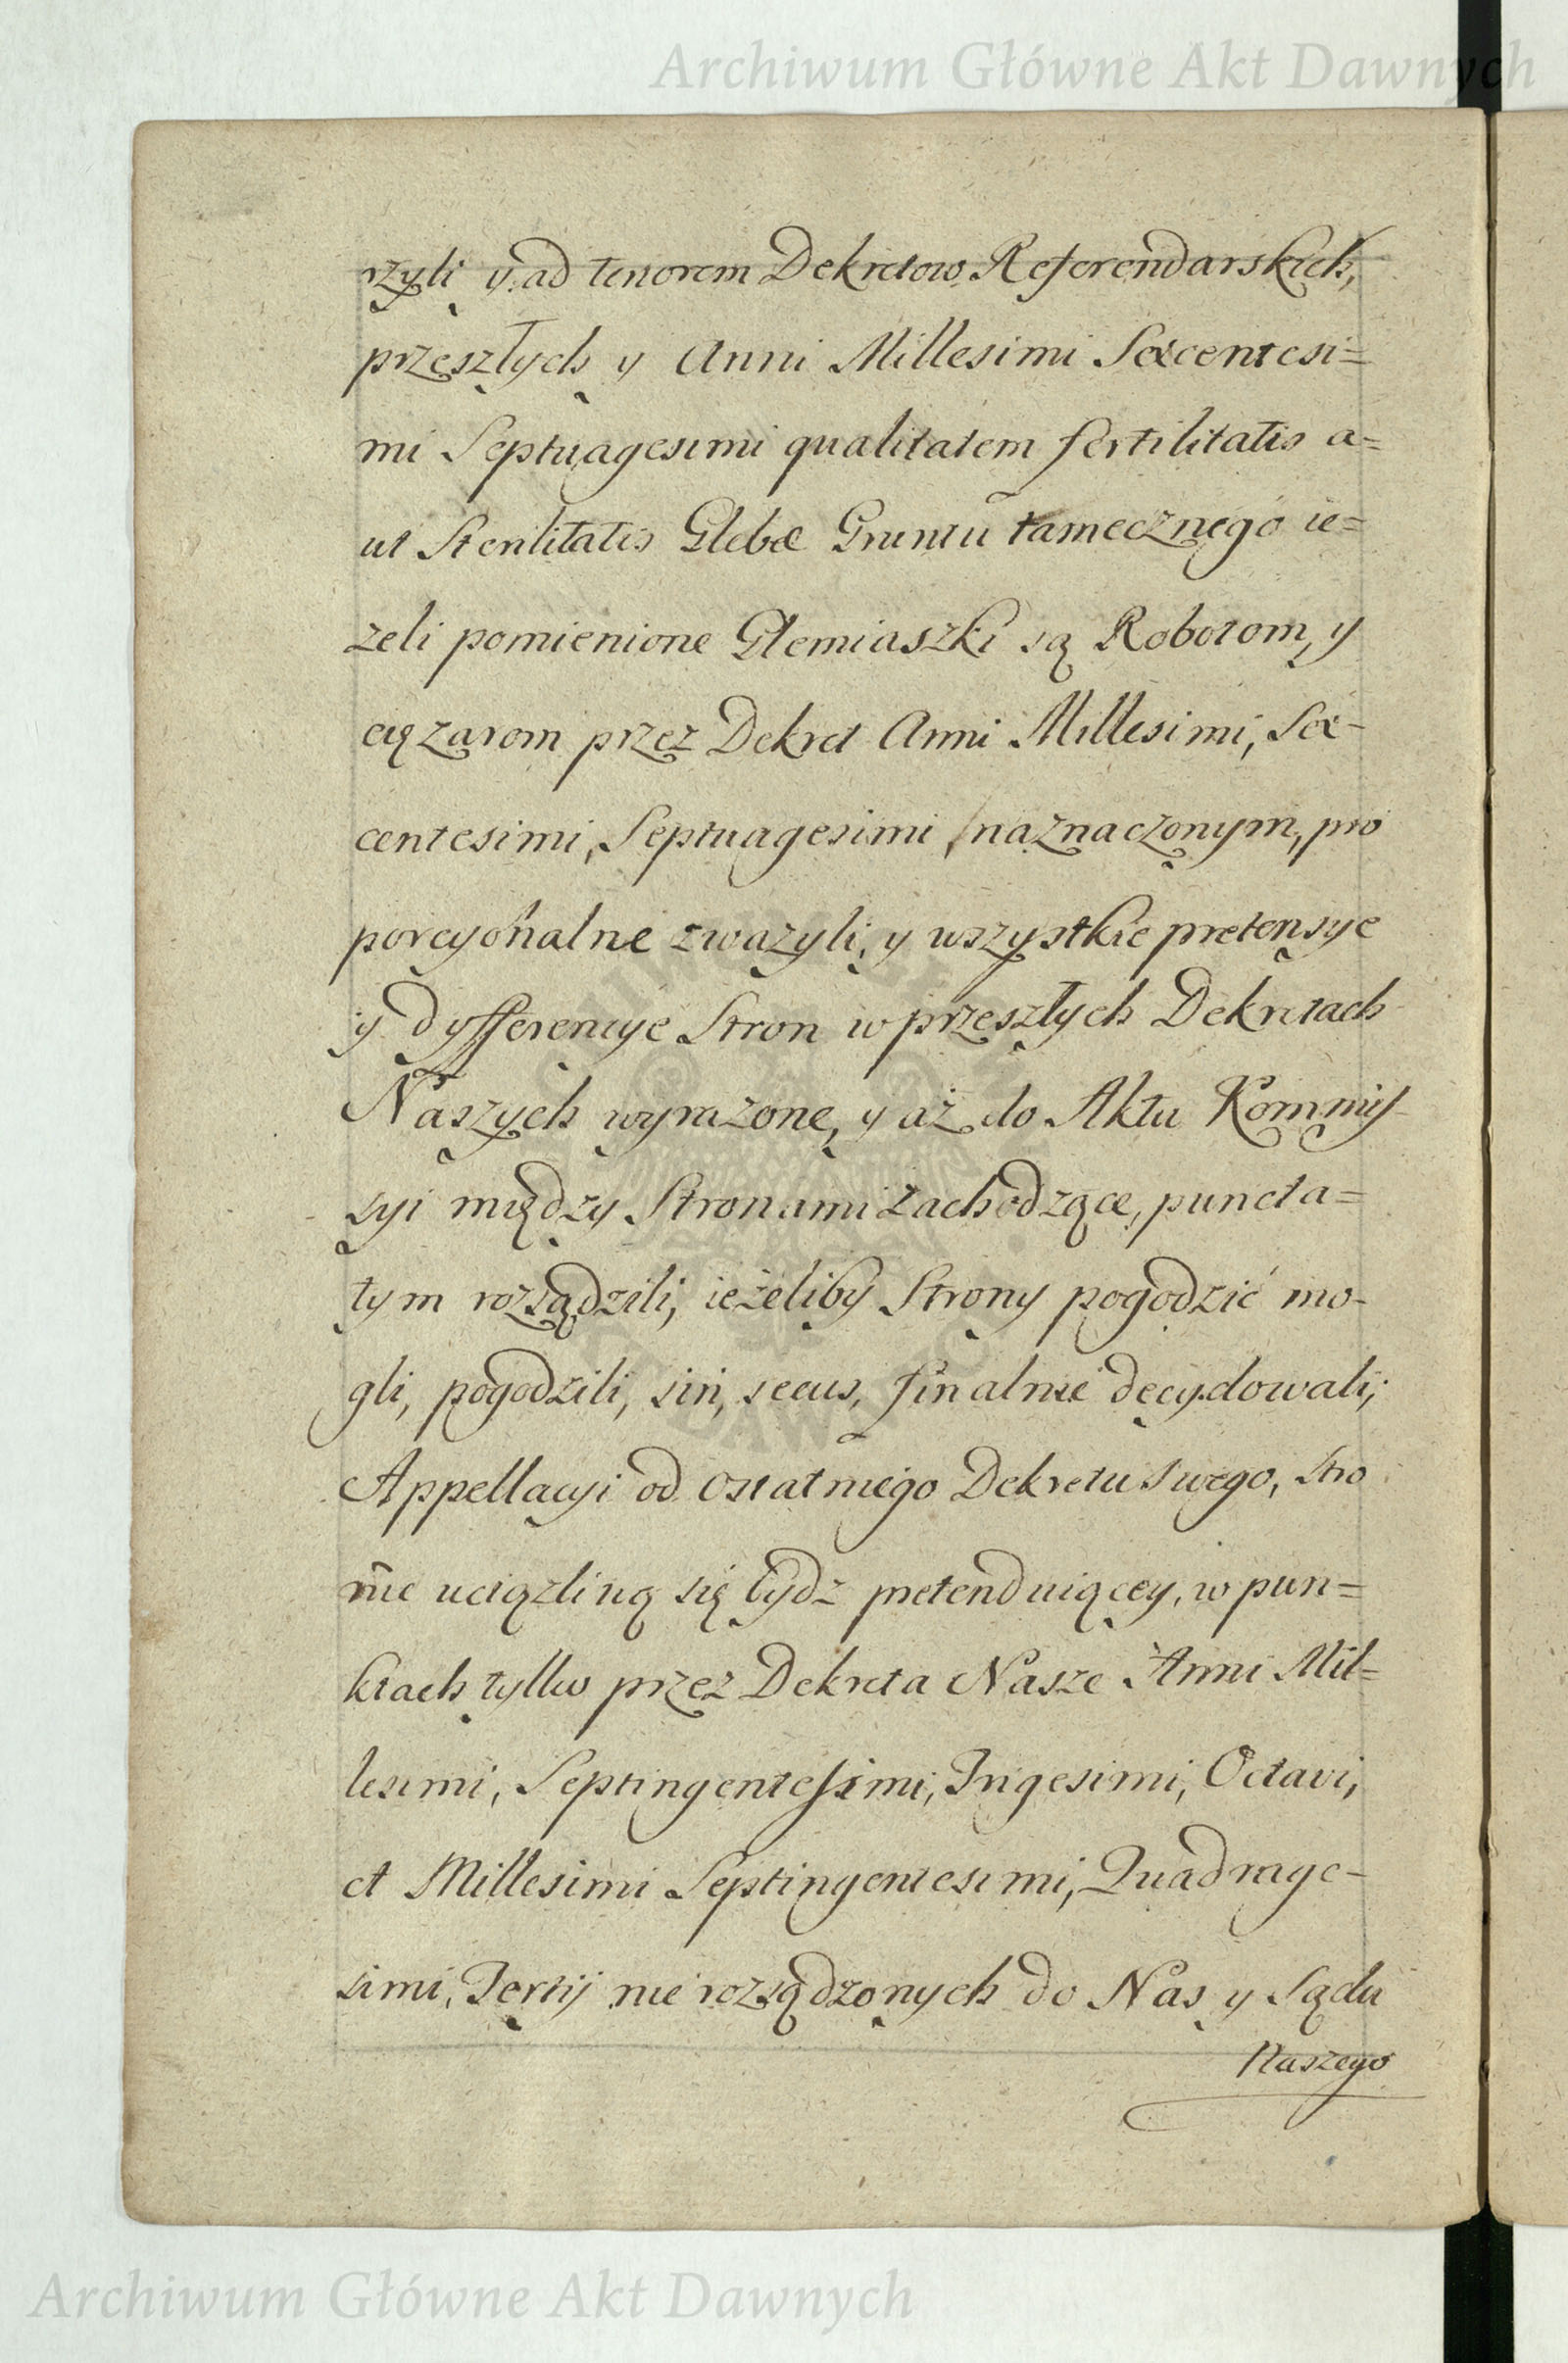 Archiwum Główne Akt Dawnych
rzyli y ad tenorem Dekretow Referendarskich,
przeszłych y Anni Millesimi Sexcentesi=
mi Septuagesimi qualitatem fertilitatis a=
ut Sterilitatis Glebæ Gruntu tamecznego ie=
zeli pomienione Glemiaszki są Robotom, y
ciązarom przez Dekret Anni Millesimi, Sex-
centesimi, Septuagesimi naznaczonym, pro
porcyonalne zwazyli, y wszystkie pretensye
y dyfferencye Stron w przeszłych Dekretach
Naszych wyrazone, y az do Aktu Kommis
syi między Stronami zachodzące, puncta=
tym rozsądzili, ieżeliby Strony pogodzić mo-
gli, pogodzili, sin, secus, finalnie decydowali;
Appellacyi od ostatniego Dekretu swego, stro
nie uciązliwą się bydz pretenduiącey, w pun=
ktach tylko przez Dekreta Nasze Anni Mil=
lesimi, Septingentesimi, Trigesimi, Octavi,
et Millesimi Septingentesimi, Quadrage-
simi, Tertij nie rozsądzonych do Nas y Sądu
Naszego
Archiwum Główne Akt Dawnych